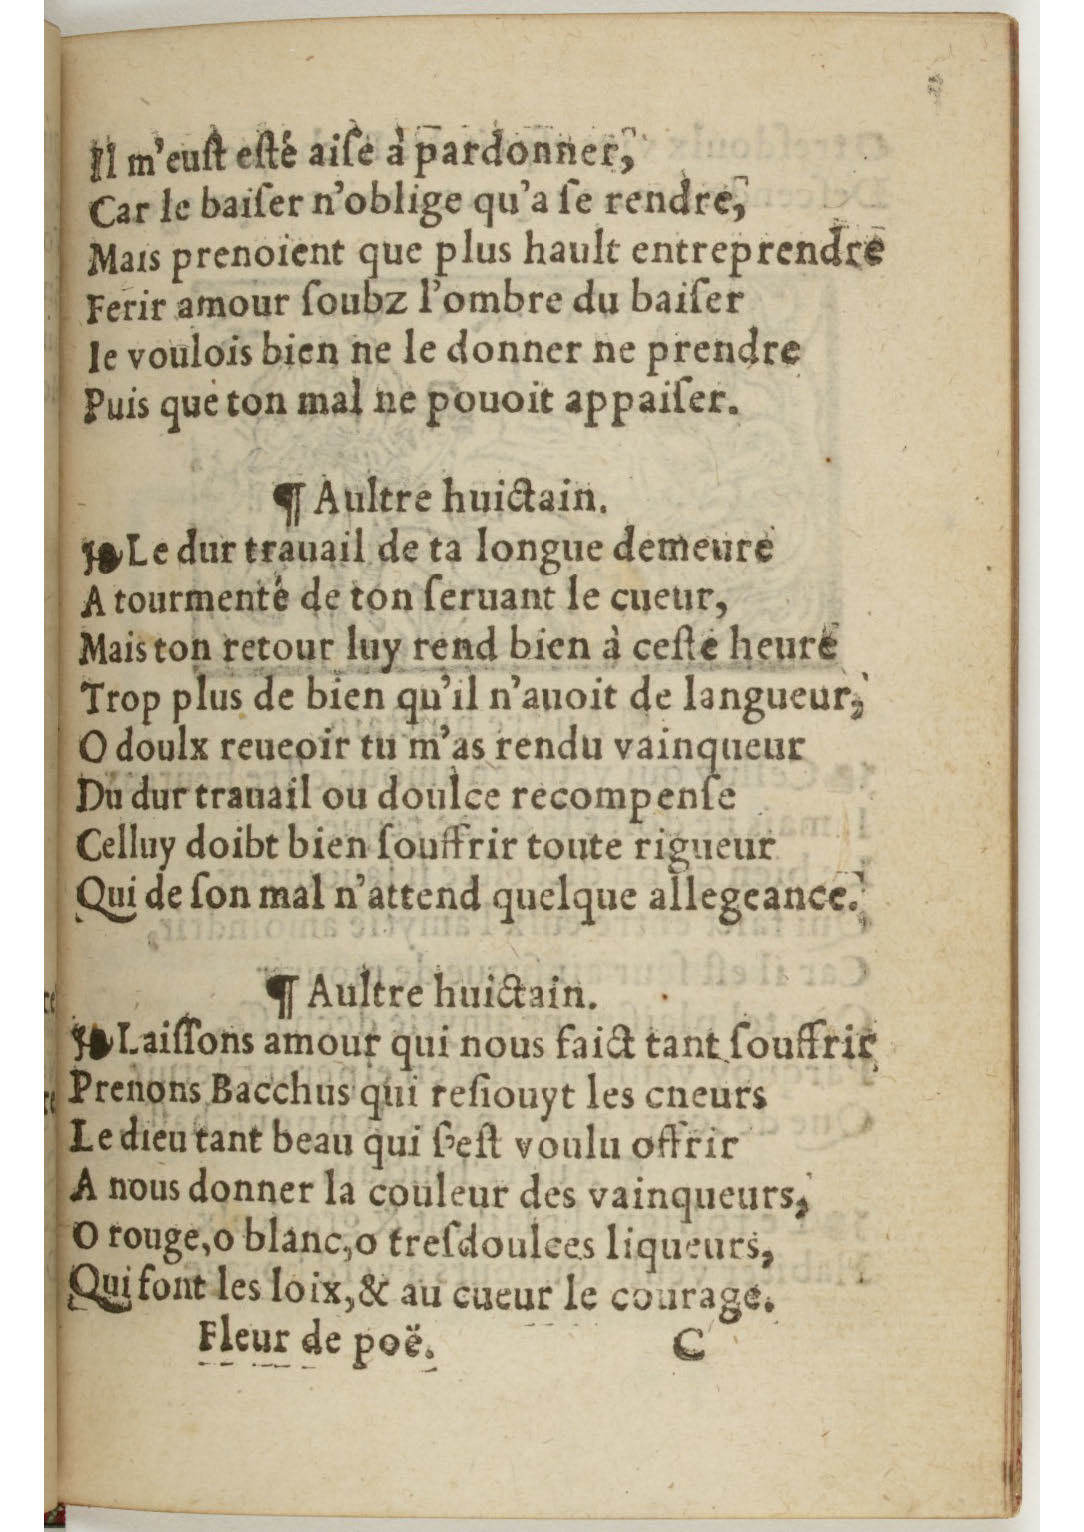 Il m'euſt eſté aiſe à pardonner,
Car le baiſer n'oblige qu'a ſe rendre,
Mais prenoient que plus hault entreprendre
Ferir amour ſoubz l'ombre du baiſer
Ie voulois bien ne le donner ne prendre
Puis que ton mal ne pouoit appaiſer.
¶ Aultre huictain.
❧ Le dur trauail de ta longue demeure
A tourmenté de ton ſeruant le cueur,
Mais ton retour luy rend bien à ceſte heure
Trop plus de bien qu'il n'auoit de langueur,
O doulx reueoir tu m'as rendu vainqueur
Du dur trauail ou doulce recompenſe
Celluy doibt bien ſouffrir toute rigueur
Qui de ſon mal n'attend quelque allegeance.
¶ Aultre huictain.
❧ Laiſſons amour qui nous faict tant ſouffrir
Prenons Bacchus qui reſiouyt les cneurs
Le dieu tant beau qui ſ'eſt voulu offrir
A nous donner la couleur des vainqueurs,
O rouge, o blanc, o treſdoulces liqueurs,
Qui font les loix, & au cueur le courage.
Fleur de poë. C